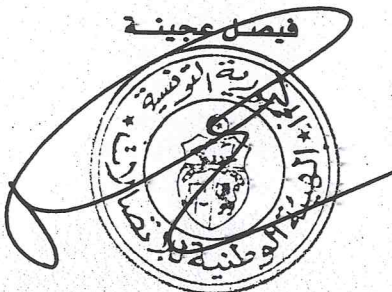 فيصل عجينة
الجمهورية التونسية
الهيئة الوطنية للإتصالات